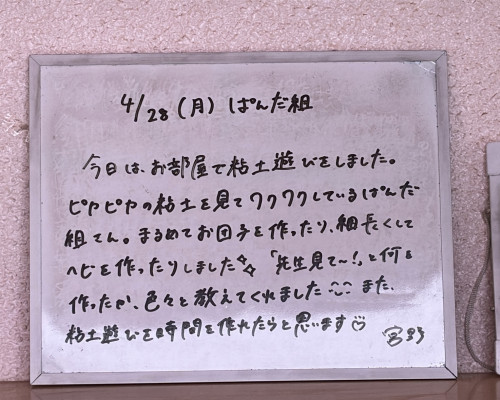 4/28(月) ぱんだ組
今日は、お部屋で粘土遊びをしました。
ピカピカの粘土を見てワクワクしているぱんだ
組さん。まるめてお団子を作ったり、細長くして
ヘビを作ったりしました✨「先生見て〜!」と何を
作ったか、色々と教えてくれました^^また、
粘土遊びを時間を作れたらと思います☺
宮野